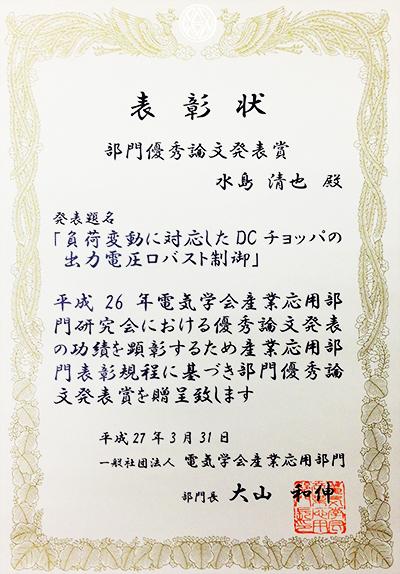 表彰状
部門優秀論文発表賞
水島 清也 殿
発表題名
「負荷変動に対応したDCチョッパの
出力電圧ロバスト制御」
平成26年電気学会産業応用部
門研究会における優秀論文発表
の功績を顕彰するため産業応用部
門表彰規程に基づき部門優秀論
文発表賞を贈呈致します
平成27年3月31日
一般社団法人 電気学会産業応用部門
部門長 大山 和伸